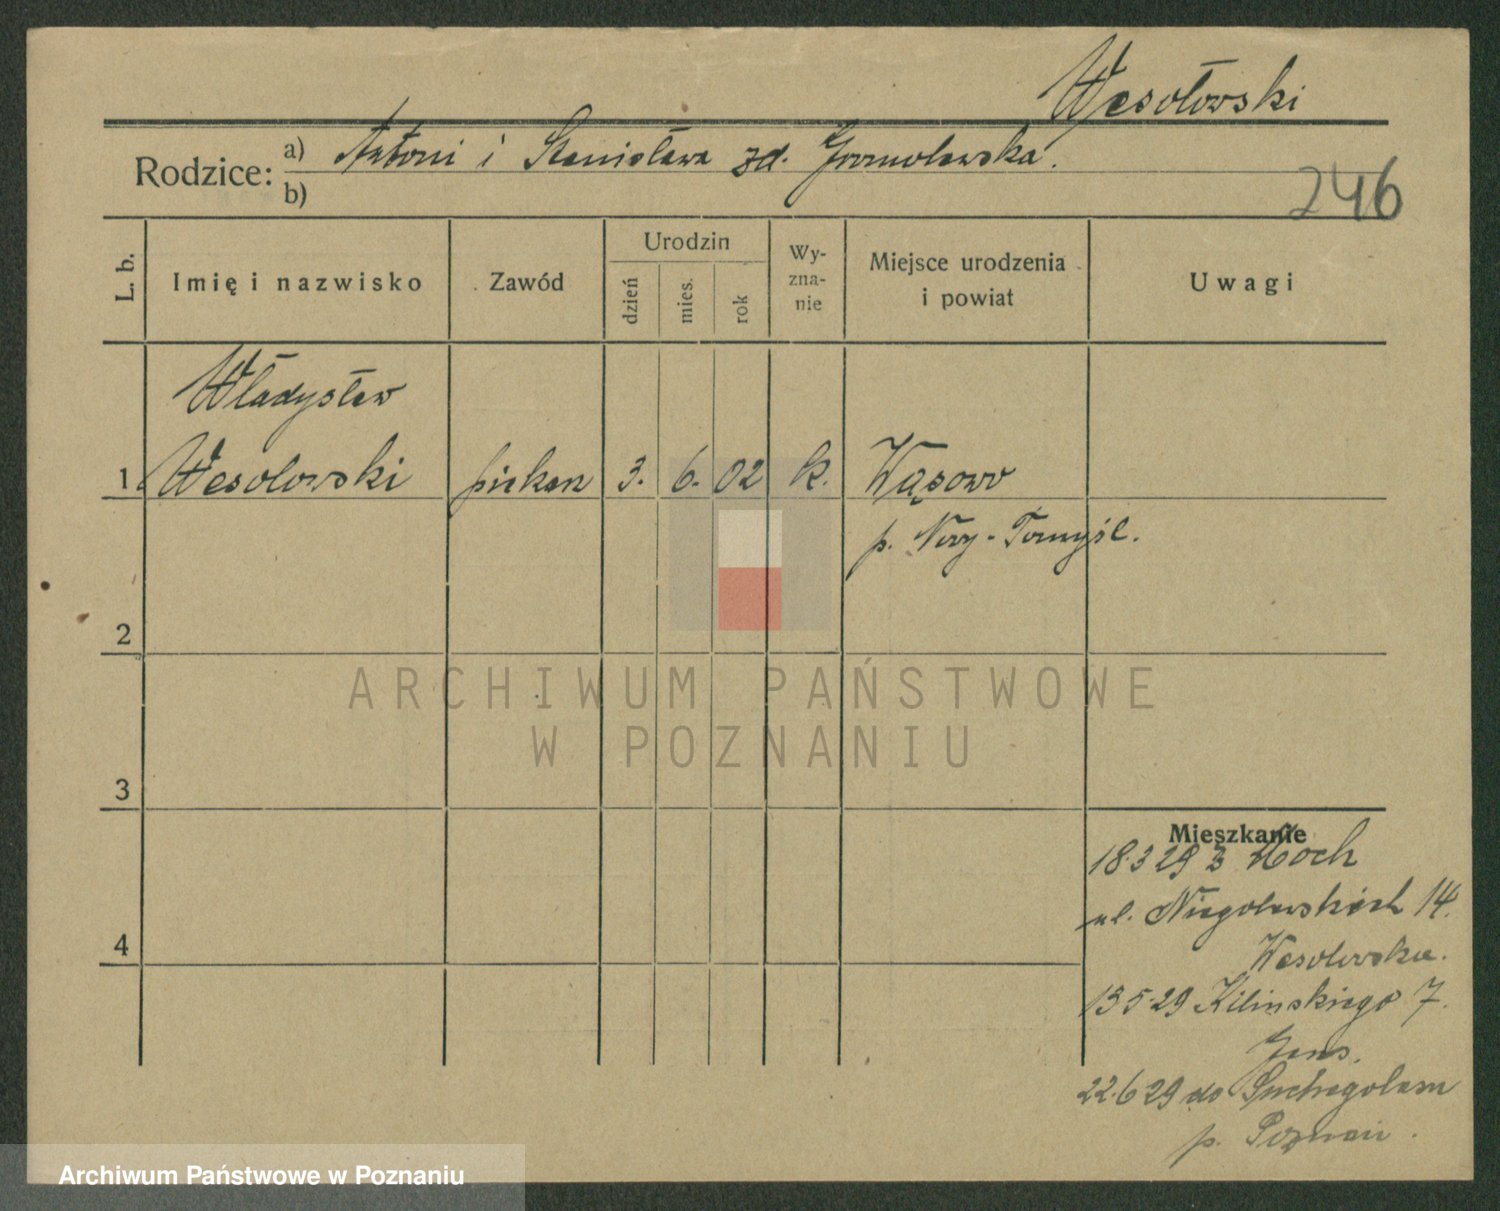 Wesołowski
Rodzice: a) Antoni i Stanisława zd. Gromolewska.
b)
246
L. b.
Imię i nazwisko
Zawód
Urodzin
dzień
mies.
rok
Wy-
zna-
nie
Miejsce urodzenia
i powiat
Uwagi
Władysław
1 Wesołowski piekarz 3. 6. 02 k. Wąsowo
p. Nowy-Tomyśl.
2
3
4
Mieszkanie
18.3 29 z
ul. Niegolewskich 14.
Wesołowska.
13 5-29 Kilinskiego 7.
22.6 29 do Suchegolasu
p. Poznań.
ARCHIWUM PAŃSTWOWE
W POZNANIU
Archiwum Państwowe w Poznaniu